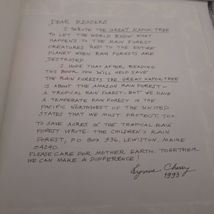 DEAR READERS
I WROTE THE GREAT KAPOK TREE
TO LET THE WORLD KNOW WHAT
HAPPENS TO THE RAIN FOREST
CREATURES AND TO THE ENTIRE
PLANET WHEN RAIN FORESTS ARE
DESTROYED.
I HOPE THAT AFTER READING
THIS BOOK YOU WILL HELP SAVE
THE RAIN FORESTS. THE GREAT KAPOK TREE
IS ABOUT THE AMAZON RAIN FOREST—
A TROPICAL RAIN FOREST. BUT WE HAVE
A TEMPERATE RAIN FOREST IN THE
PACIFIC NORTHWEST OF THE UNITED
STATES THAT WE MUST PROTECT, TOO.
TO SAVE ACRES OF THE TROPICAL RAIN
FOREST WRITE: THE CHILDREN'S RAIN
FOREST, P.O. BOX 936, LEWISTON, MAINE
04240.
PLEASE CARE FOR MOTHER EARTH. TOGETHER
WE CAN MAKE A DIFFERENCE!
Lynne Cherry
1993